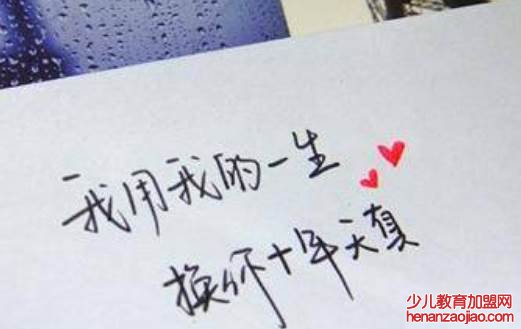 我用我的一生
换你十年天真
少儿教育加盟网
henanzaojiao.com